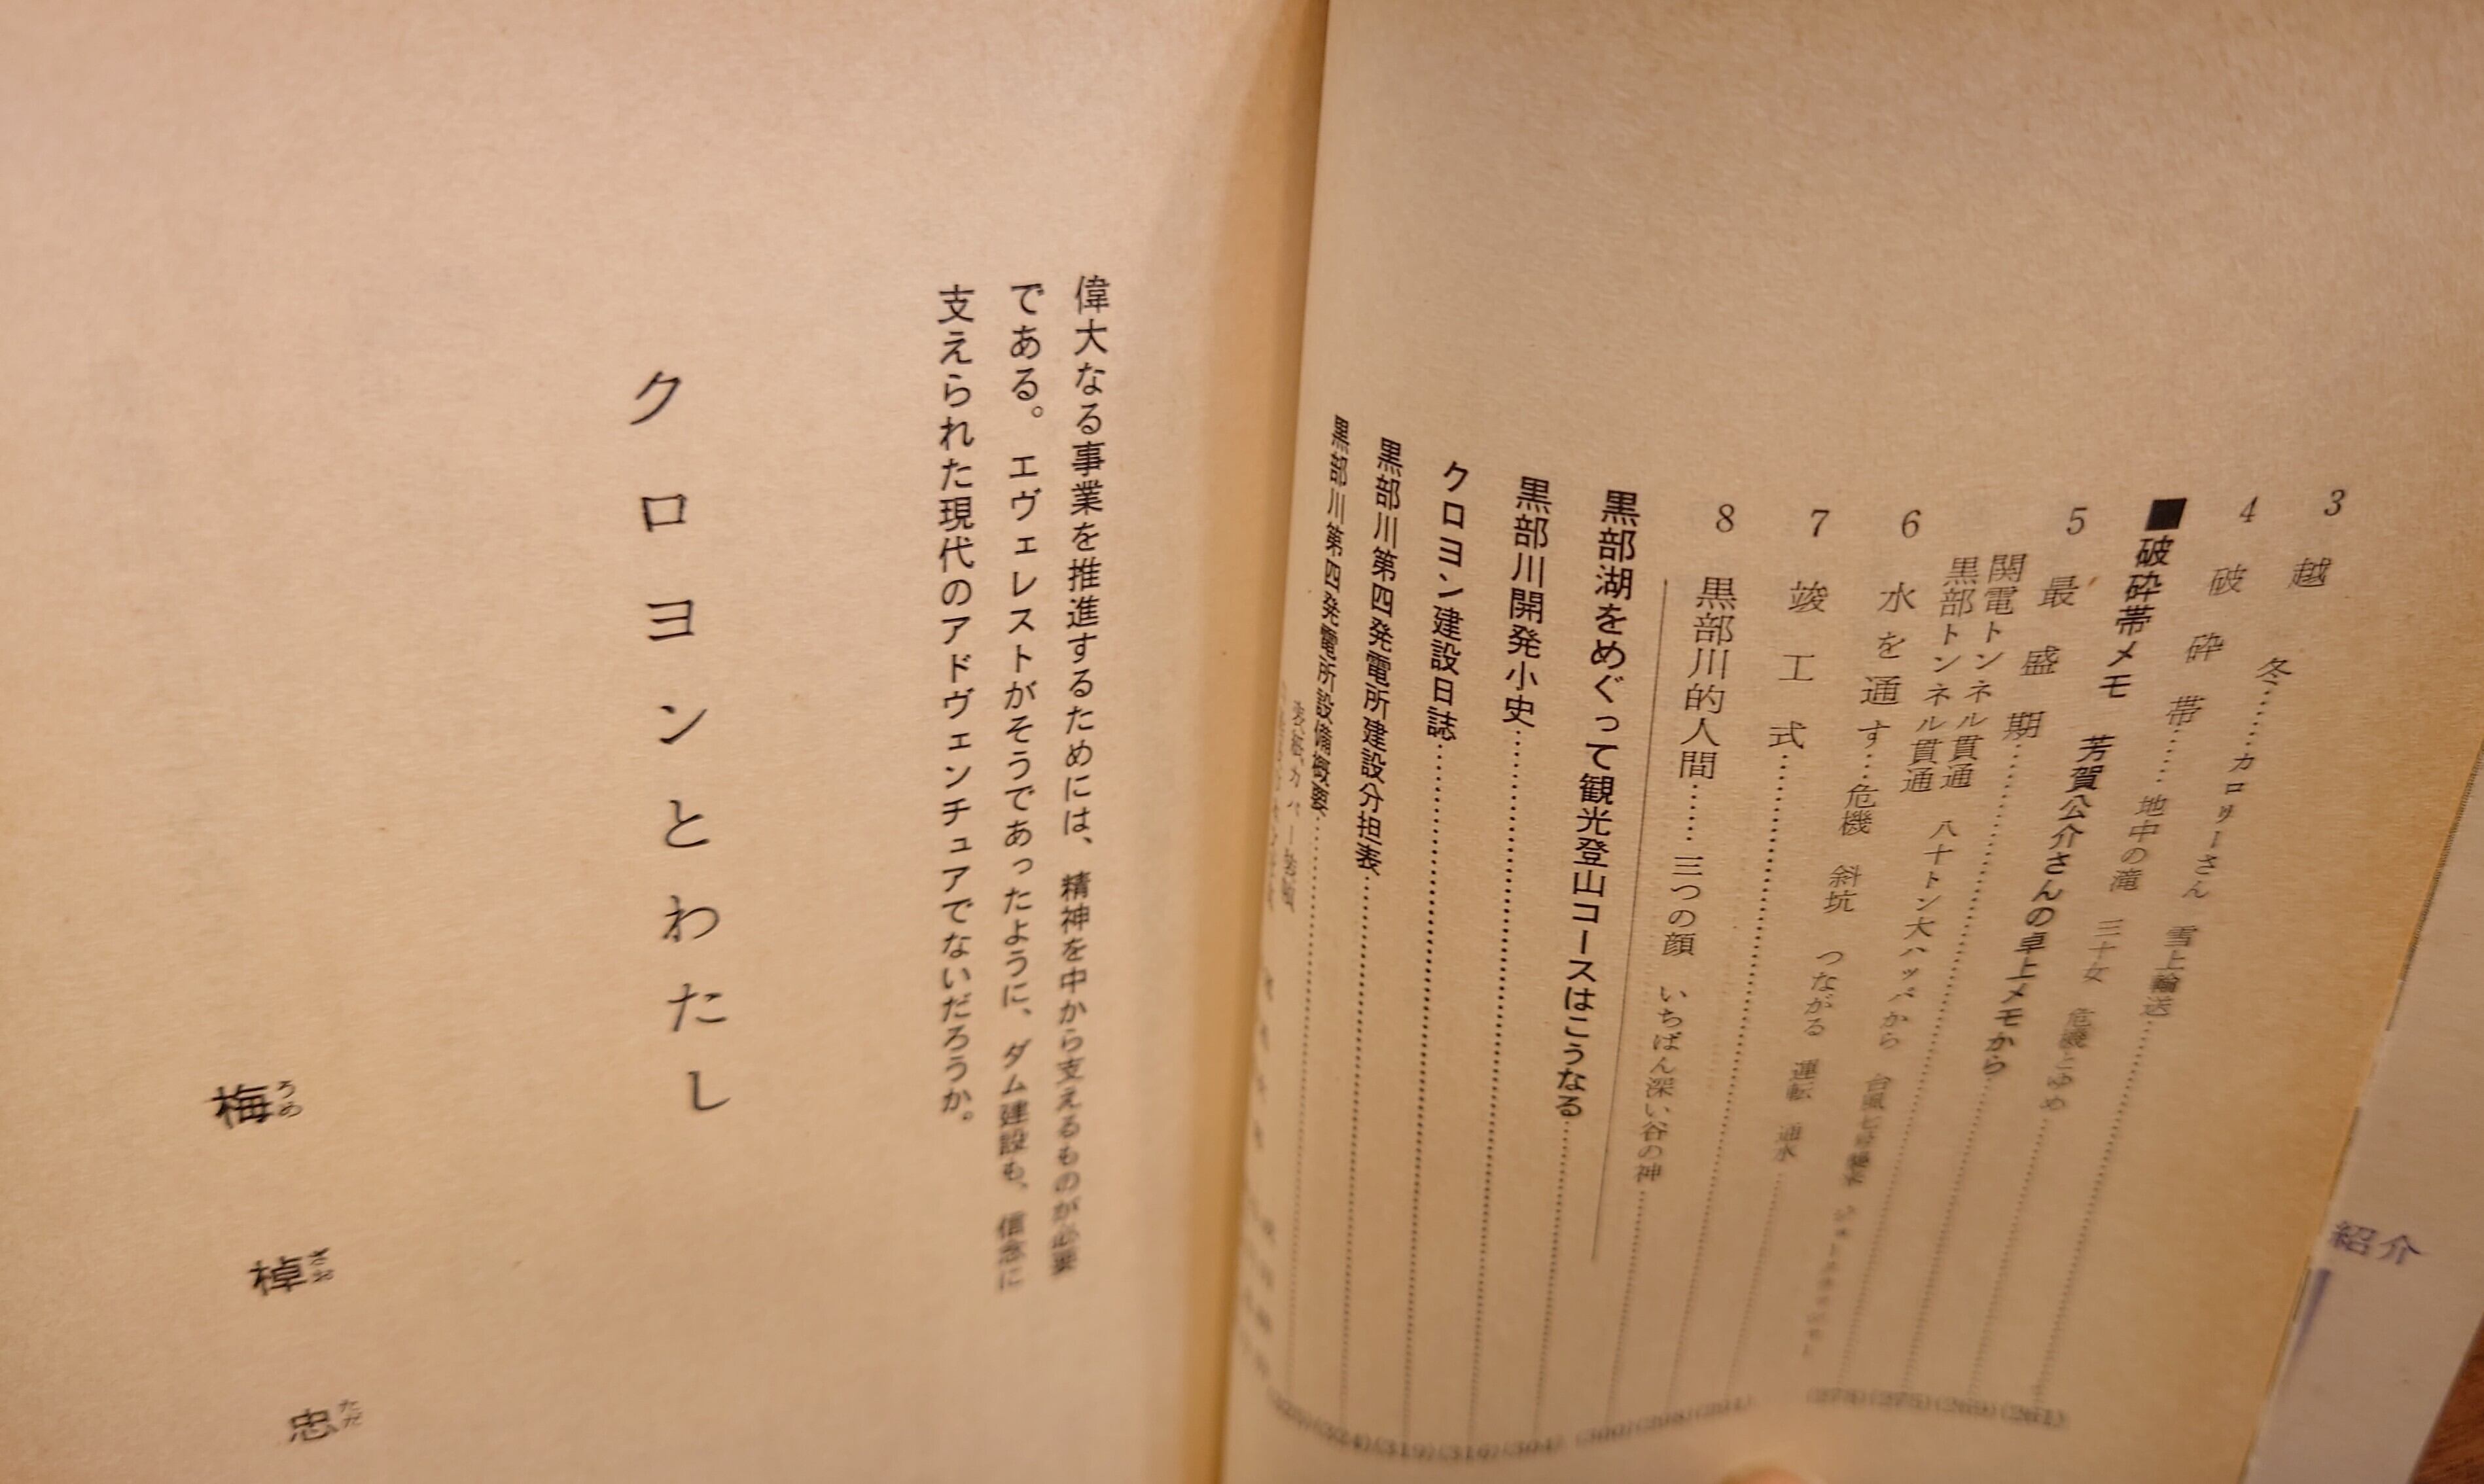 3 越冬……カロリーさん 雪上輸送
4 破砕帯……地中の滝 三十女 危機とゆめ
■破砕帯メモ 芳賀公介さんの卓上メモから
5 最盛期
関電トンネル貫通
黒部トンネル貫通 八十トン大ハッパから
6 水を通す…危機 斜坑 つながる 運転 通水
7 竣工式
8 黒部川的人間……三つの顔 いちばん深い谷の神
黒部湖をめぐって観光登山コースはこうなる
黒部川開発小史
クロヨン建設日誌
黒部川第四発電所建設分担表
黒部川第四発電所設備概要
偉大なる事業を推進するためには、精神を中から支えるものが必要
である。エヴェレストがそうであったように、ダム建設も、信念に
支えられた現代のアドヴェンチュアでないだろうか。
クロヨンとわたし
梅棹忠
うめさおただ
紹介